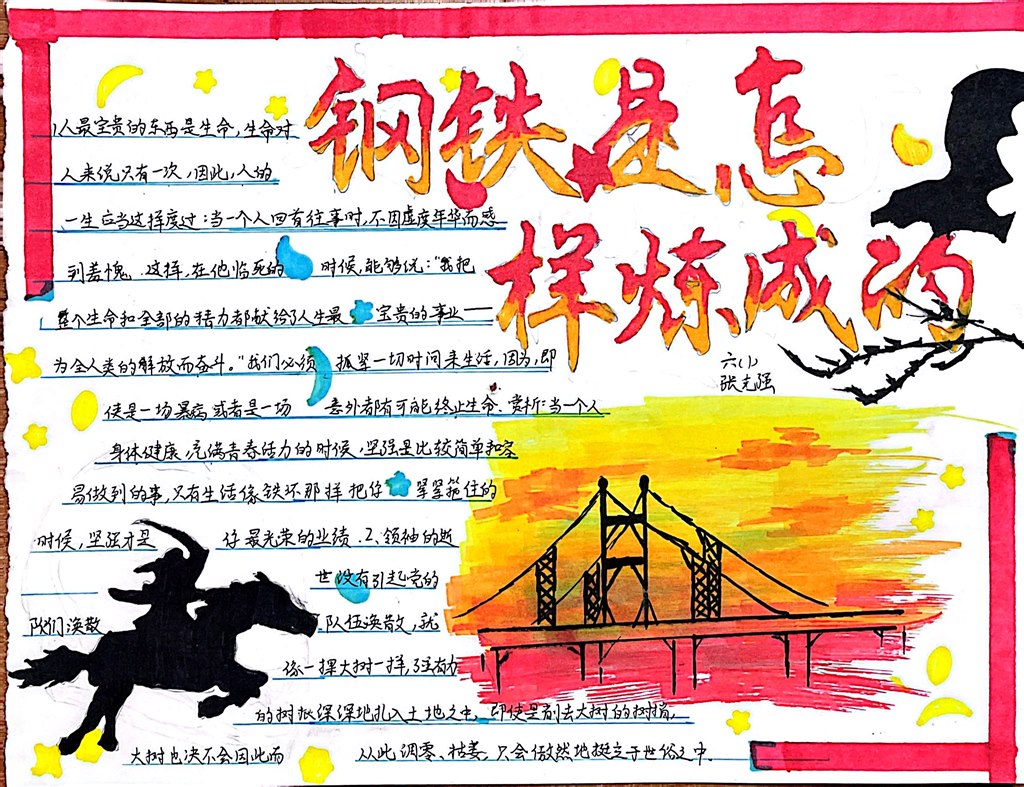 钢铁是怎
样炼成的
六(1)
张克强
1人最宝贵的东西是生命,生命对
人来说只有一次,因此,人的
一生应当这样度过:当一个人回首往事时,不因虚度年华而感
到羞愧.这样,在他临死的时候,能够说:"我把
整个生命和全部的精力都献给了人生最宝贵的事业——
为全人类的解放而奋斗。"我们必须抓紧一切时间来生活,因为,即
使是一场暴病或者是一场意外都有可能终止生命.赏析:当一个人
身体健康,充满青春活力的时候,坚强是比较简单和容
易做到的事,只有生活像铁环那样把你紧紧箍住的
时候,坚强才是你最光荣的业绩.2.领袖的逝
世没有引起党的
队们涣散队伍涣散,就
像一棵大树一样,强有力
的树根深深地扎入土地之中,即使是削去大树的树梢,
大树也决不会因此而从此凋零、枯萎,只会傲然地挺立于世俗之中.